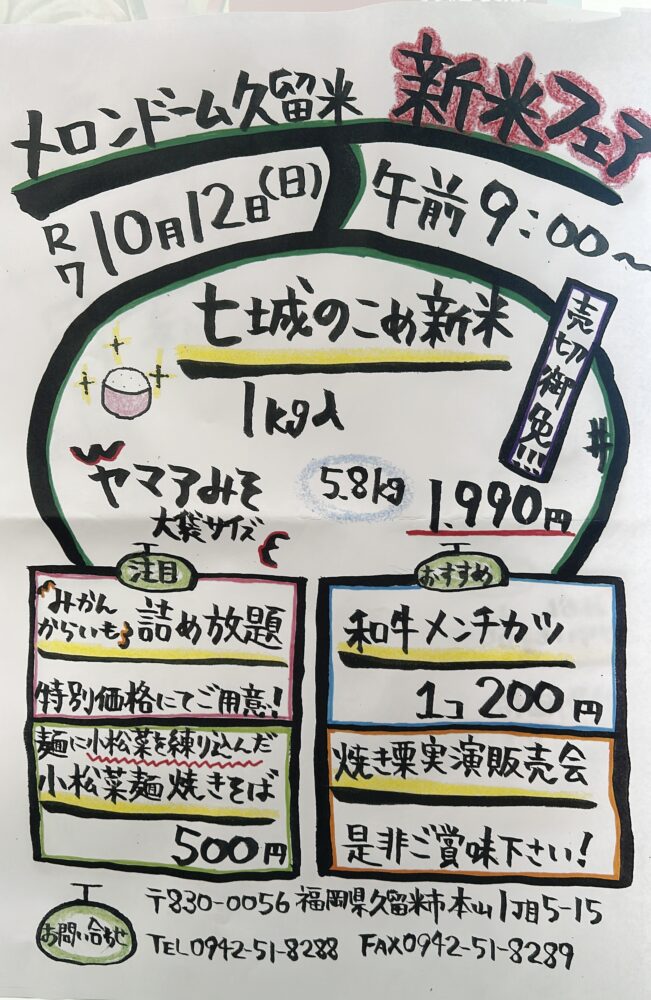 メロンドーム久留米 新米フェア
R7 10月12日(日) 午前9:00～
七城のこめ新米
1kg入
売切御免!!!
ヤマアみそ
大袋サイズ
5.8kg 1,990円
注目
みかん
からいも 詰め放題
特別価格にてご用意!
おすすめ
和牛メンチカツ
1コ 200円
麺に小松菜を練り込んだ
小松菜麺焼きそば
500円
焼き栗実演販売会
是非ご賞味下さい!
お問い合わせ
〒830-0056 福岡県久留米市本山1丁目5-15
TEL0942-51-8288 FAX0942-51-8289